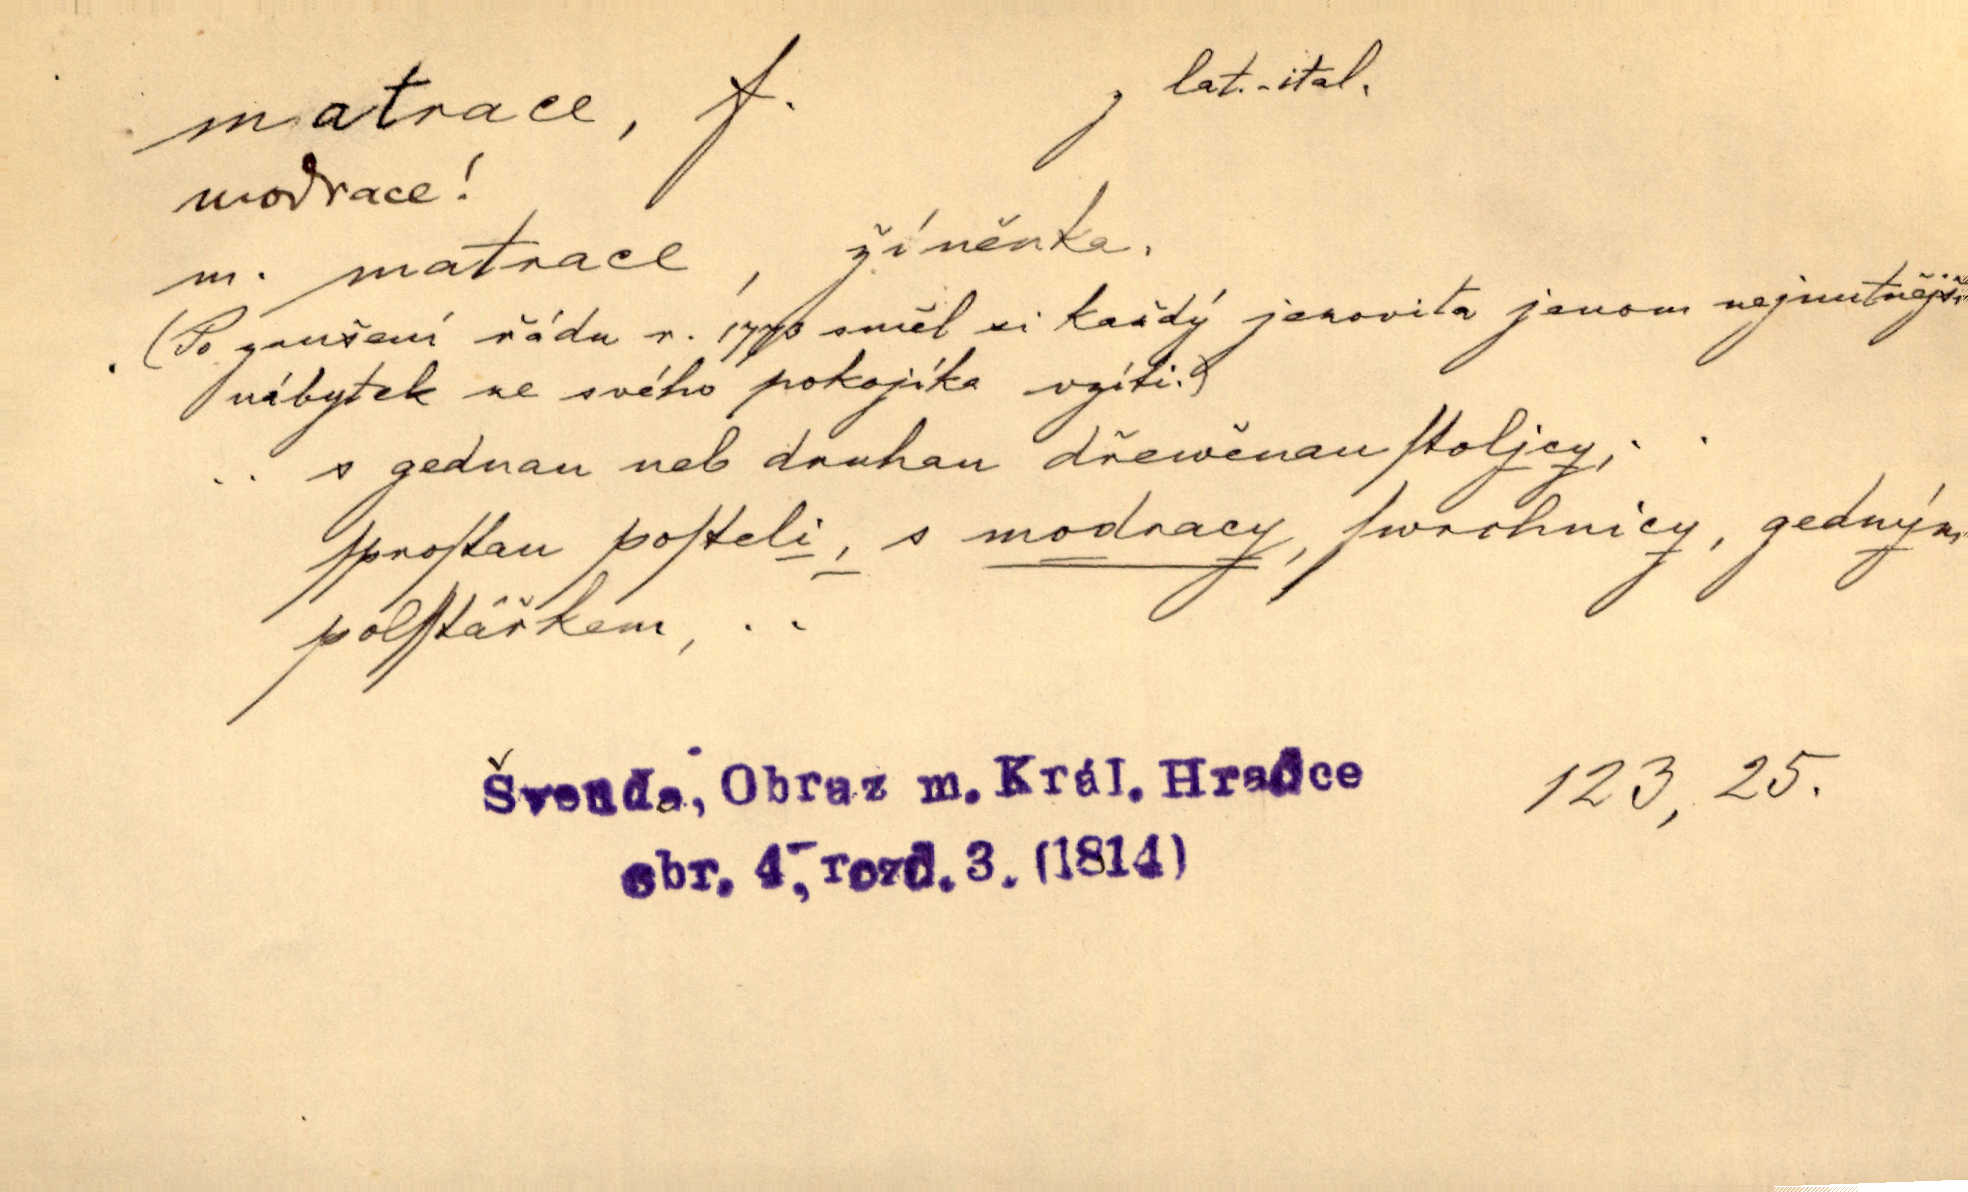 matrace, f. z lat.-ital.
modrace!
m. matrace, žíněnka.
(Po zrušení řádu r. 1773 směl si každý jezovita jenom nejnutnější
nábytek ze svého pokojíka vzíti.)
.. s gednau neb druhau dřewěnau ſtoljcy, . .
ſproſtau poſteli, s modracy, ſwrchnicy, gedným
polſtářkem, ..
Švenda, Obraz m. Král. Hradce 123, 25.
obr. 4, rozd. 3. (1814)